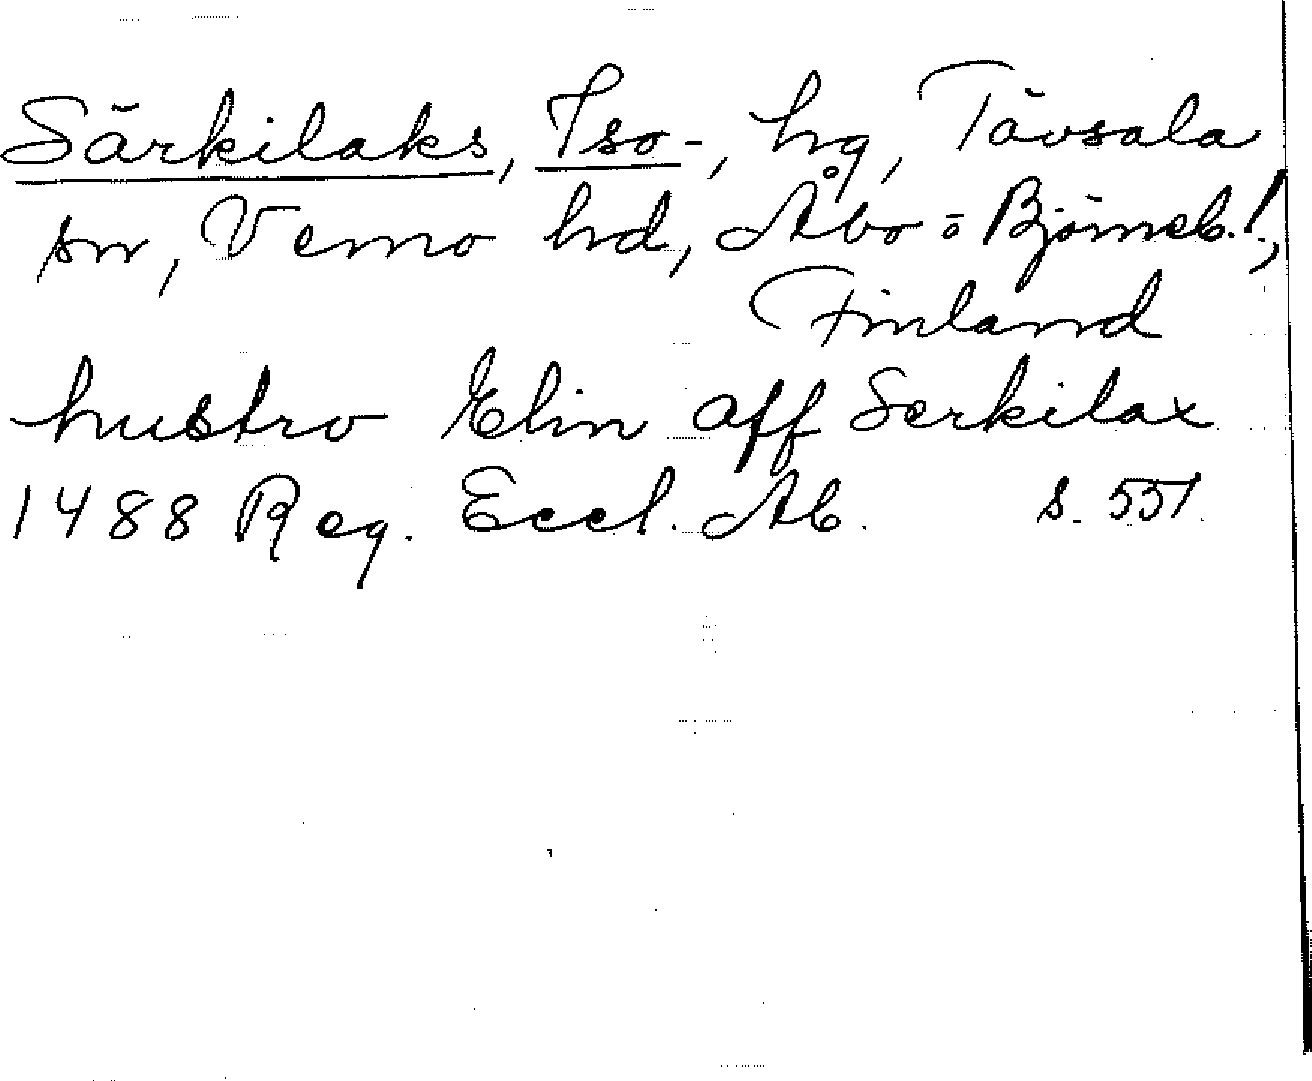 Särkilaks, Iso-, hg, Tövsala
sn, Vemo hd, Åbo o Björneb. l.,
Finland
hustro Elin aff Særkilax
1488 Reg. Eccl. Ab. s. 551